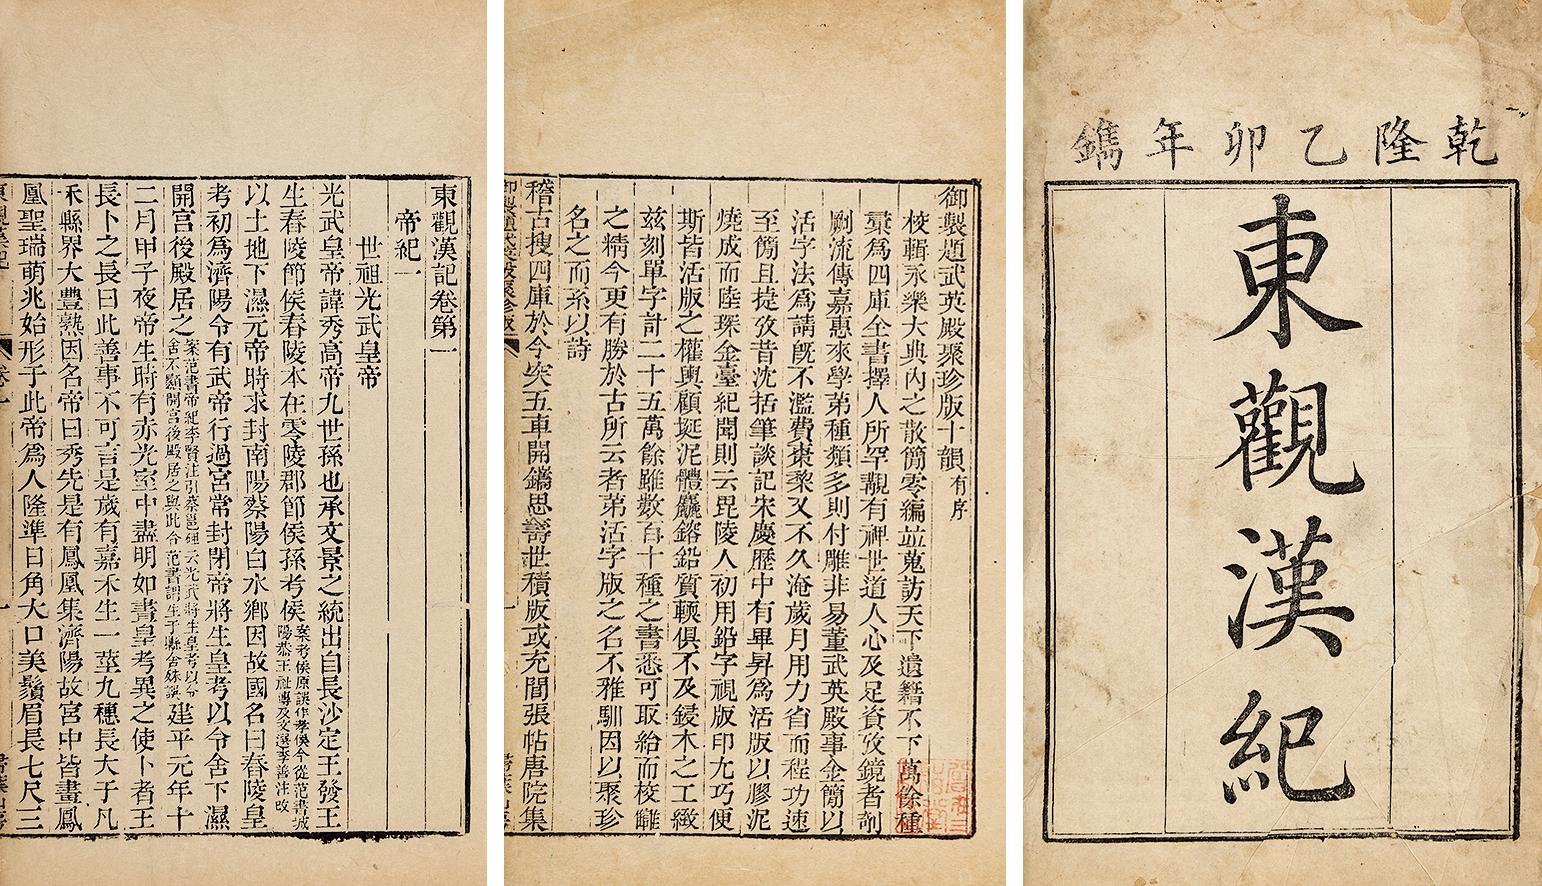 乾隆乙卯年鐫
東觀漢紀
御製題武英殿聚珍版十韻有序
校輯永樂大典內之散簡零編並蒐訪天下遺籍不下萬餘種
彚為四庫全書擇人所罕覯有裨世道人心及足資攷鏡者剞
劂流傳嘉惠來學苐種類多則付雕非易董武英殿事金簡以
活字法為請既不濫費棗棃又不久淹歲月用力省而程功速
至簡且捷攷昔沈括筆談記宋慶歷中有畢昇為活版以膠泥
燒成而陸琛金臺紀聞則云毘陵人初用鉛字視版印尤巧便
斯皆活版之權輿顧埏泥體麤鎔鉛質輭俱不及鋟木之工緻
茲刻單字計二十五萬餘雖數百十種之書悉可取給而校讎
之精今更有勝於古所云者苐活字版之名不雅馴因以聚珍
名之而系以詩
稽古搜四庫於今突五車開鐫思壽世積版或充閭張帖唐院集
御製題武英殿聚珍版
東觀漢記卷第一
帝紀一
世祖光武皇帝
光武皇帝諱秀高帝九世孫也承文景之統出自長沙定王發王
生舂陵節侯舂陵本在零陵郡節侯孫考侯案考侯原誤作孝侯今從范書城陽恭王祉傳及文選李善注改
以土地下濕元帝時求封南陽蔡陽白水鄉因故國名曰舂陵皇
考初為濟陽令有武帝行過宮常封閉帝將生皇考以令舍下濕
開宮後殿居之案范書帝紀李賢注引蔡邕碑云光武將生皇考以令舍不顯開宮後殿居之與此合范書謂生于縣舍殊誤建平元年十
二月甲子夜帝生時有赤光室中盡明如晝皇考異之使卜者王
長卜之長曰此善事不可言是歲有嘉禾生一莖九穗長大于凡
禾縣界大豐熟因名帝曰秀先是有鳳凰集濟陽故宮中皆畫鳳
凰聖瑞萌兆始形于此帝為人隆準日角大口美鬚眉長七尺三
卷一
一